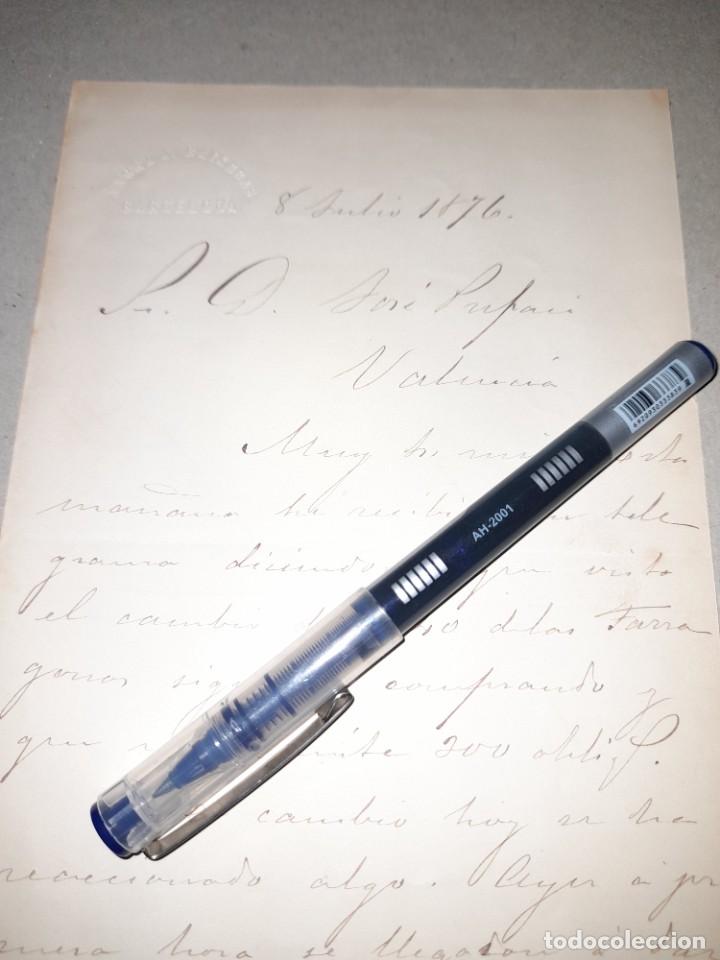 BARCELONA
8 Julio 1876.
Sr. D. José
Valencia
Muy Sr mio: esta
mañana he recibido un tele
grama diciendo que visto
el cambio de 50 delas Tarra
gonas siguiera comprando y
que 200 obligs.
cambio hoy se ha
reaccionado algo. Ayer á pri
mera hora se llegaron á dar
AH-2001
todocoleccion
todocoleccion.net